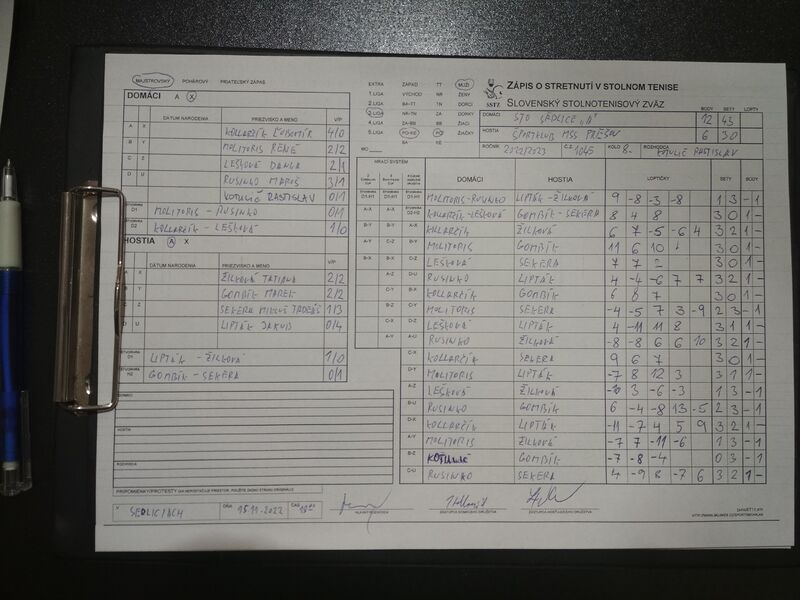 MAJSTROVSKÝ POHÁROVÝ PRIATEĽSKÝ ZÁPAS
DOMÁCI A X
DÁTUM NARODENIA PRIEZVISKO A MENO V/P
A X KOLLARČÍK ĽUBOMÍR 4/0
B Y MOLITORIS RENÉ 2/2
C Z LEŠKOVÁ DANKA 2/1
D U RUSINKO MAROŠ 3/1
RASTISLAV 0/1
D1 MOLITORIS - RUSINKO 0/1
D2 KOLLARČÍK - LEŠKOVÁ 1/0
HOSTIA A X
DÁTUM NARODENIA PRIEZVISKO A MENO V/P
ŽILKOVÁ TATIANA 2/2
GOMBÍK MAREK 2/2
SEKERA TADEÁŠ 1/3
LIPTÁK JAKUB 0/4
LIPTÁK - ŽILKOVÁ 1/0
GOMBÍK - SEKERA 0/1
DOMÁCI
HOSTIA
ROZHODCA
PRIPOMIENKY/PROTESTY
V SEDLICIACH DŇA 15.11.2022 ČAS
HLAVNÝ ROZHODCA
ZÁSTUPCA DOMÁCEHO DRUŽSTVA
ZÁSTUPCA HOSŤUJÚCEHO DRUŽSTVA
EXTRA ZÁPAD TT MUŽI
1. LIGA VÝCHOD NR ŽENY
2. LIGA BA-TT TN DORCI
3. LIGA NR-TN ZA DORKY
4. LIGA ZA-BB BB ŽIACI
5. LIGA PO-KE PO ŽIAČKY
BA KE
SSTZ
ZÁPIS O STRETNUTÍ V STOLNOM TENISE
SLOVENSKÝ STOLNOTENISOVÝ ZVÄZ
BODY SETY LOPTY
DOMÁCI STO SEDLICE "A" 12 43
HOSTIA ŠPORTKLUB MŠŠ PREŠOV 6 30
ROČNÍK 2022/2023 Č.Z. 1045 KOLO 8. ROZHODCA RASTISLAV
HRACÍ SYSTÉM DOMÁCI HOSTIA LOPTIČKY SETY BODY
MOLITORIS-RUSINKO LIPTÁK-ŽILKOVÁ 9 -8 -3 -8 1 3 - 1
KOLLARČÍK-LEŠKOVÁ GOMBÍK-SEKERA 8 4 8 3 0 1 -
KOLLARČÍK ŽILKOVÁ 6 7 -5 -6 4 3 2 1 -
MOLITORIS GOMBÍK 11 6 10 3 0 1 -
LEŠKOVÁ SEKERA 7 7 2 3 0 1 -
RUSINKO LIPTÁK 4 -4 -6 7 7 3 2 1 -
KOLLARČÍK GOMBÍK 6 8 7 3 0 1 -
MOLITORIS SEKERA -4 -5 7 3 -9 2 3 - 1
LEŠKOVÁ LIPTÁK 4 -11 11 8 3 1 1 -
RUSINKO ŽILKOVÁ -8 -8 6 6 10 3 2 1 -
KOLLARČÍK SEKERA 9 6 7 3 0 1 -
MOLITORIS LIPTÁK -7 8 12 3 3 1 1 -
LEŠKOVÁ ŽILKOVÁ -10 3 -6 -3 1 3 - 1
RUSINKO GOMBÍK 6 -4 -8 13 -5 2 3 - 1
KOLLARČÍK LIPTÁK -11 -7 4 5 9 3 2 1 -
MOLITORIS ŽILKOVÁ -7 7 -11 -6 1 3 - 1
GOMBÍK -7 -8 -4 0 3 - 1
RUSINKO SEKERA 4 -9 8 -7 6 3 2 1 -